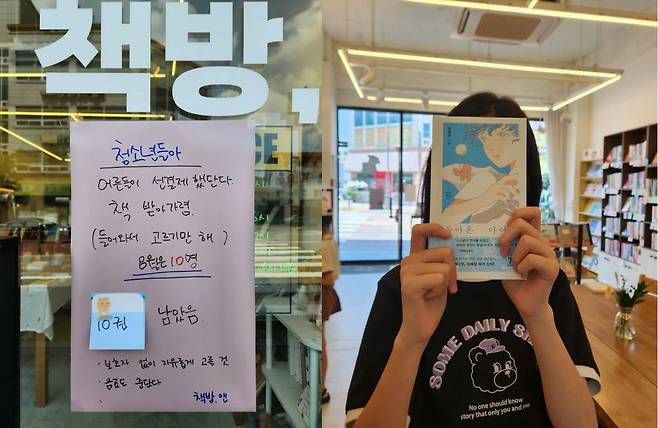 책방,
청소년들아
어른들이 선결제 했단다.
책 받아가렴.
(들어와서 고르기만 해)
8월은 10명
10권
남았음
· 보호자 없이 자유롭게 고를 것
· 음료도 준단다
책방.앤
SOME DAILY
No one should know
story that only you and